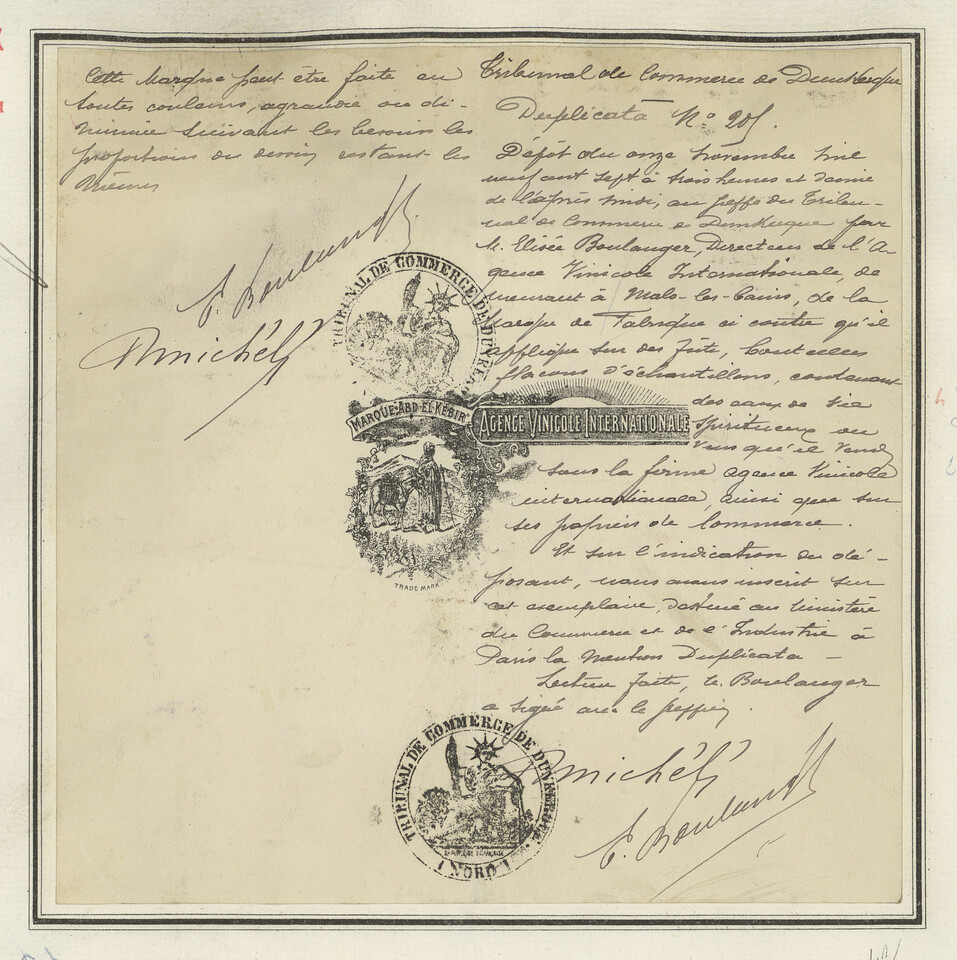 Cette Marque peut être faite en
toutes couleurs, agrandie ou di-
minuée suivant les besoins les
proportions du dessin restant les
mêmes
E. Boulanger
TRIBUNAL DE COMMERCE DE DUNKERQUE
MARQUE ABD-EL-KEBIR
AGENCE VINICOLE INTERNATIONALE
TRADE MARK
Tribunal de Commerce de Dunkerque
Duplicata N° 205.
Dépôt du onze novembre mil
neuf cent sept à trois heures et demie
de l'après midi, au greffe du Tribu-
nal de Commerce de Dunkerque par
M. Elisée Boulanger, Directeur de l'A-
gence Vinicole Internationale, de
meurant à Malo-les-bains, de la
marque de Fabrique ci contre qu'il
applique sur des fûts, bouteilles
flacons d'échantillons, contenant
des eaux de vie
spiritueux ou
vins qu'il vend
sous la firme agence Vinicole
internationale, ainsi que sur
ses papiers de Commerce.
Et sur l'indication du dé-
posant, nous avons inscrit sur
cet exemplaire, destiné au Ministère
du Commerce et de l'Industrie à
Paris la mention Duplicata –
Lecture faite, M. Boulanger
a signé avec le greffier.
TRIBUNAL DE COMMERCE DE DUNKERQUE
(NORD)
E. Boulanger